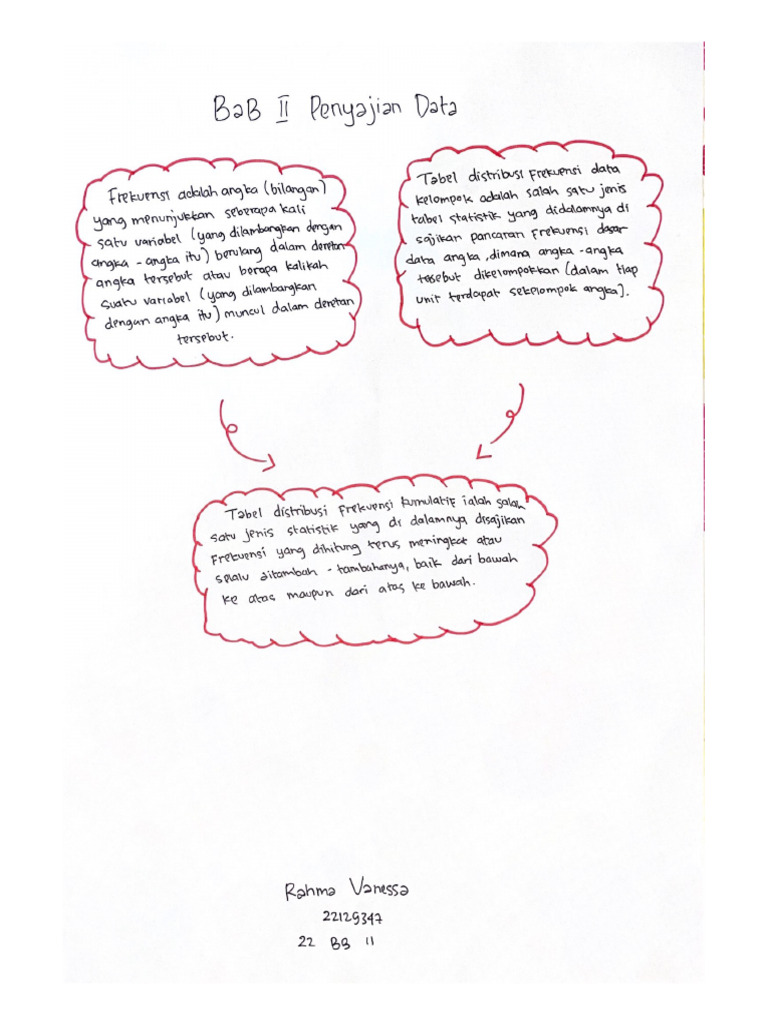 BaB II Penyajian Data
Frekuensi adalah angka (bilangan)
yang menunjukkan seberapa kali
satu variabel (yang dilambangkan dengan
angka - angka itu) berulang dalam deretan
angka tersebut atau berapa kalikah
suatu variabel (yang dilambangkan
dengan angka itu) muncul dalam deretan
tersebut.
Tabel distribusi Frekuensi data
kelompok adalah salah satu jenis
tabel statistik yang didalamnya di
sajikan pancaran Frekuensi dasar
data angka, dimana angka - angka
tesebut dikelompokkan (dalam tiap
unit terdapat sekelompok angka).
Tabel distribusi Frekuensi kumulatif ialah salah
satu jenis statistik yang di dalamnya disajikan
Frekuensi yang dihitung terus meningkat atau
selalu ditambah - tambahanya, baik dari bawah
ke atas maupun dari atas ke bawah.
Rahma Vanessa
22129347
22 BB 11